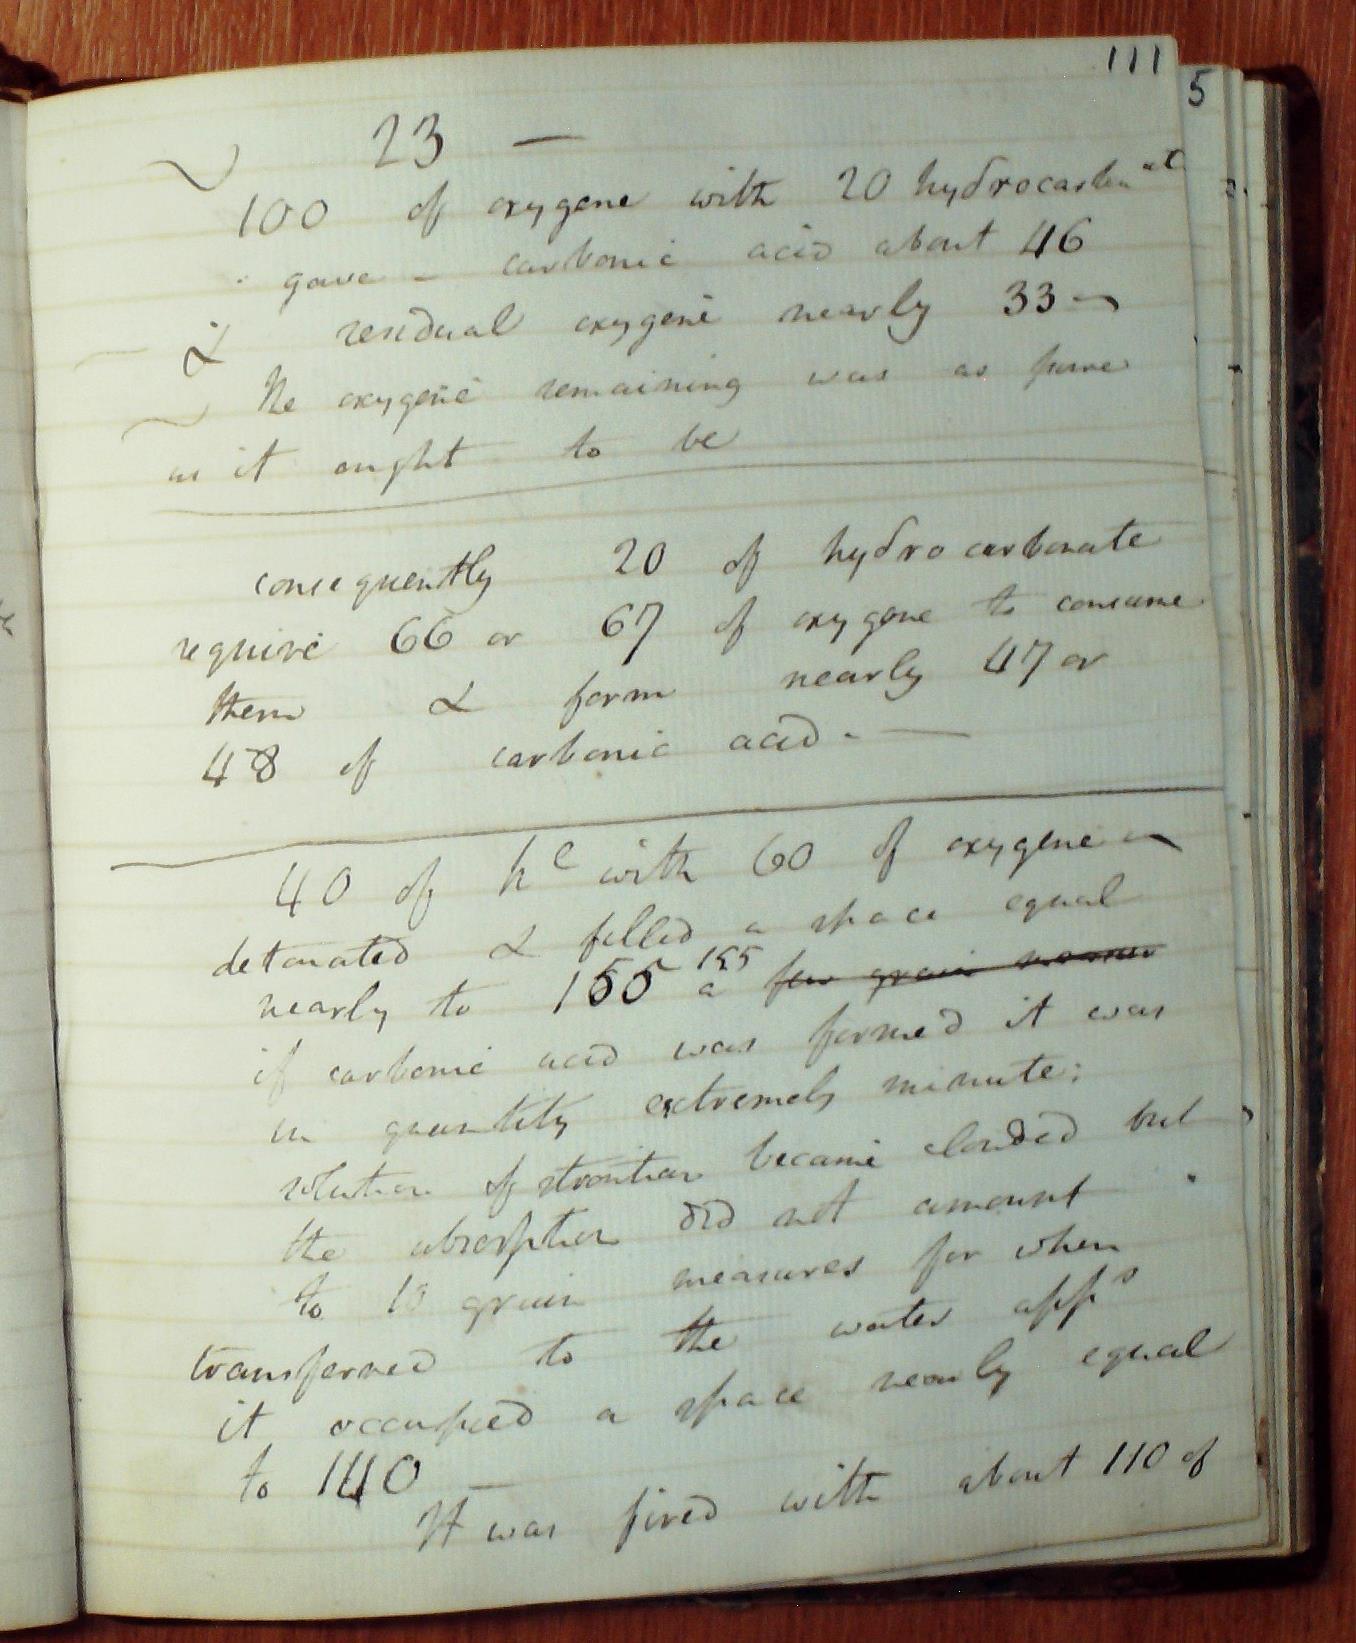 111
5
23 —
100 of oxygene with 20 hydrocarbonate
gave – carbonic acid about 46
& residual oxygene nearly 33 –
The oxygene remaining was as pure
as it ought to be
consequently 20 of hydrocarbonate
require 66 or 67 of oxygene to consume
them & form nearly 47 or
48 of carbonic acid. —
40 of h^c with 60 of oxygene –
detonated & filled a space equal
nearly to 155 155 a few grain
if carbonic acid was formed it was
in quantity extremely minute:
solution of strontian became clouded but
the absorption did not amount
to 10 grain measures for when
transferred to the water app^s
it occupied a space nearly equal
to 140 —
It was fired with about 110 of